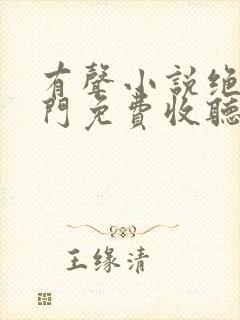 有聲小説绝
門免費收聽
王缘清